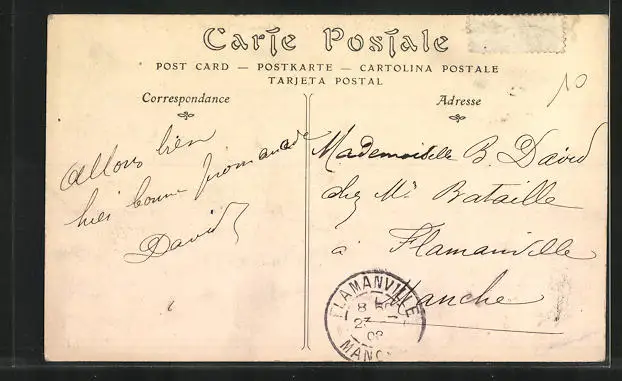 Carte Postale
POST CARD — POSTKARTE — CARTOLINA POSTALE
TARJETA POSTAL
Correspondance
Allons bien
hier bonne promenade
David
Adresse
Mademoiselle B. David
chez Mr Bataille
à Flamanville
Manche
FLAMANVILLE
8
23
08
MANC